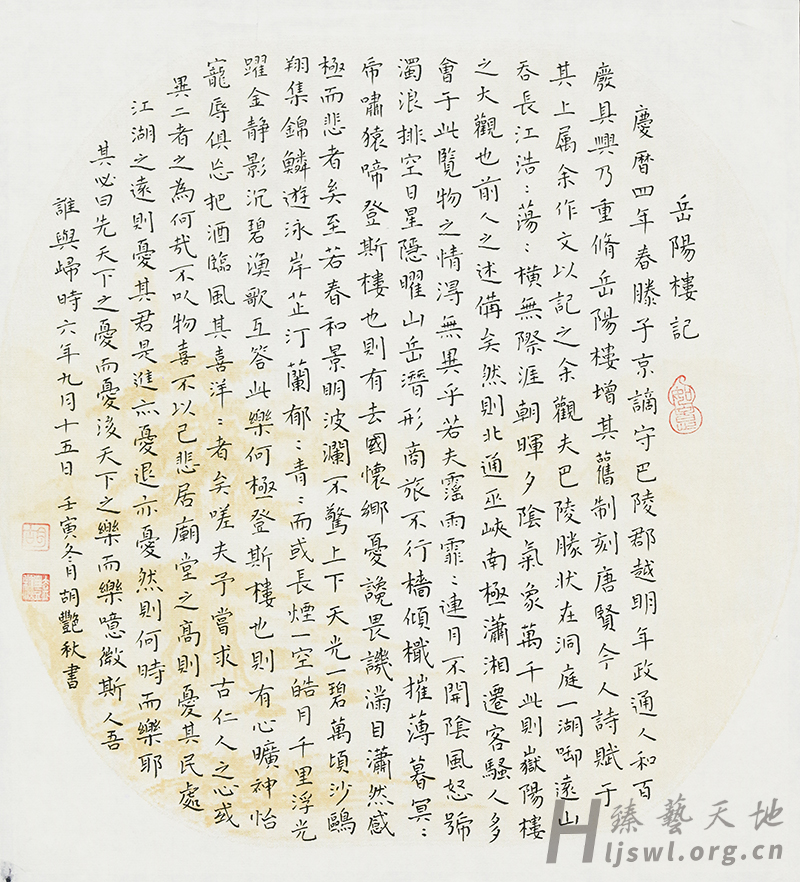 岳陽樓記
慶曆四年春滕子京謫守巴陵郡越明年政通人和百
廢具興乃重脩岳陽樓增其舊制刻唐賢今人詩賦于
其上属余作文以記之余觀夫巴陵勝狀在洞庭一湖啣遠山
吞長江浩:蕩:橫無際涯朝暉夕陰氣象萬千此則嶽陽樓
之大觀也前人之述備矣然則北通巫峽南極瀟湘遷客騷人多
會于此覽物之情淂無異乎若夫霪雨霏:連月不開陰風怒號
濁浪排空日星隱曜山岳潛形商旅不行檣傾檝摧薄暮冥:
帍嘯猿啼登斯樓也則有去國懷鄉憂讒畏譏滿目瀟然感
極而悲者矣至若春和景明波瀾不驚上下天光一碧萬頃沙鷗
翔集錦鱗遊泳岸芷汀蘭郁:青:而或長煙一空皓月千里浮光
躍金靜影沉碧漁歌互答此樂何極登斯樓也則有心曠神怡
寵辱俱忘把酒臨風其喜洋:者矣嗟夫予嘗求古仁人之心或
異二者之為何哉不以物喜不以己悲居廟堂之高則憂其民處
江湖之遠則憂其君是進亦憂退亦憂然則何時而樂耶
其必曰先天下之憂而憂後天下之樂而樂噫微斯人吾
誰與歸時六年九月十五日 壬寅冬月胡艷秋書
臻藝天地
Hljswl.org.cn